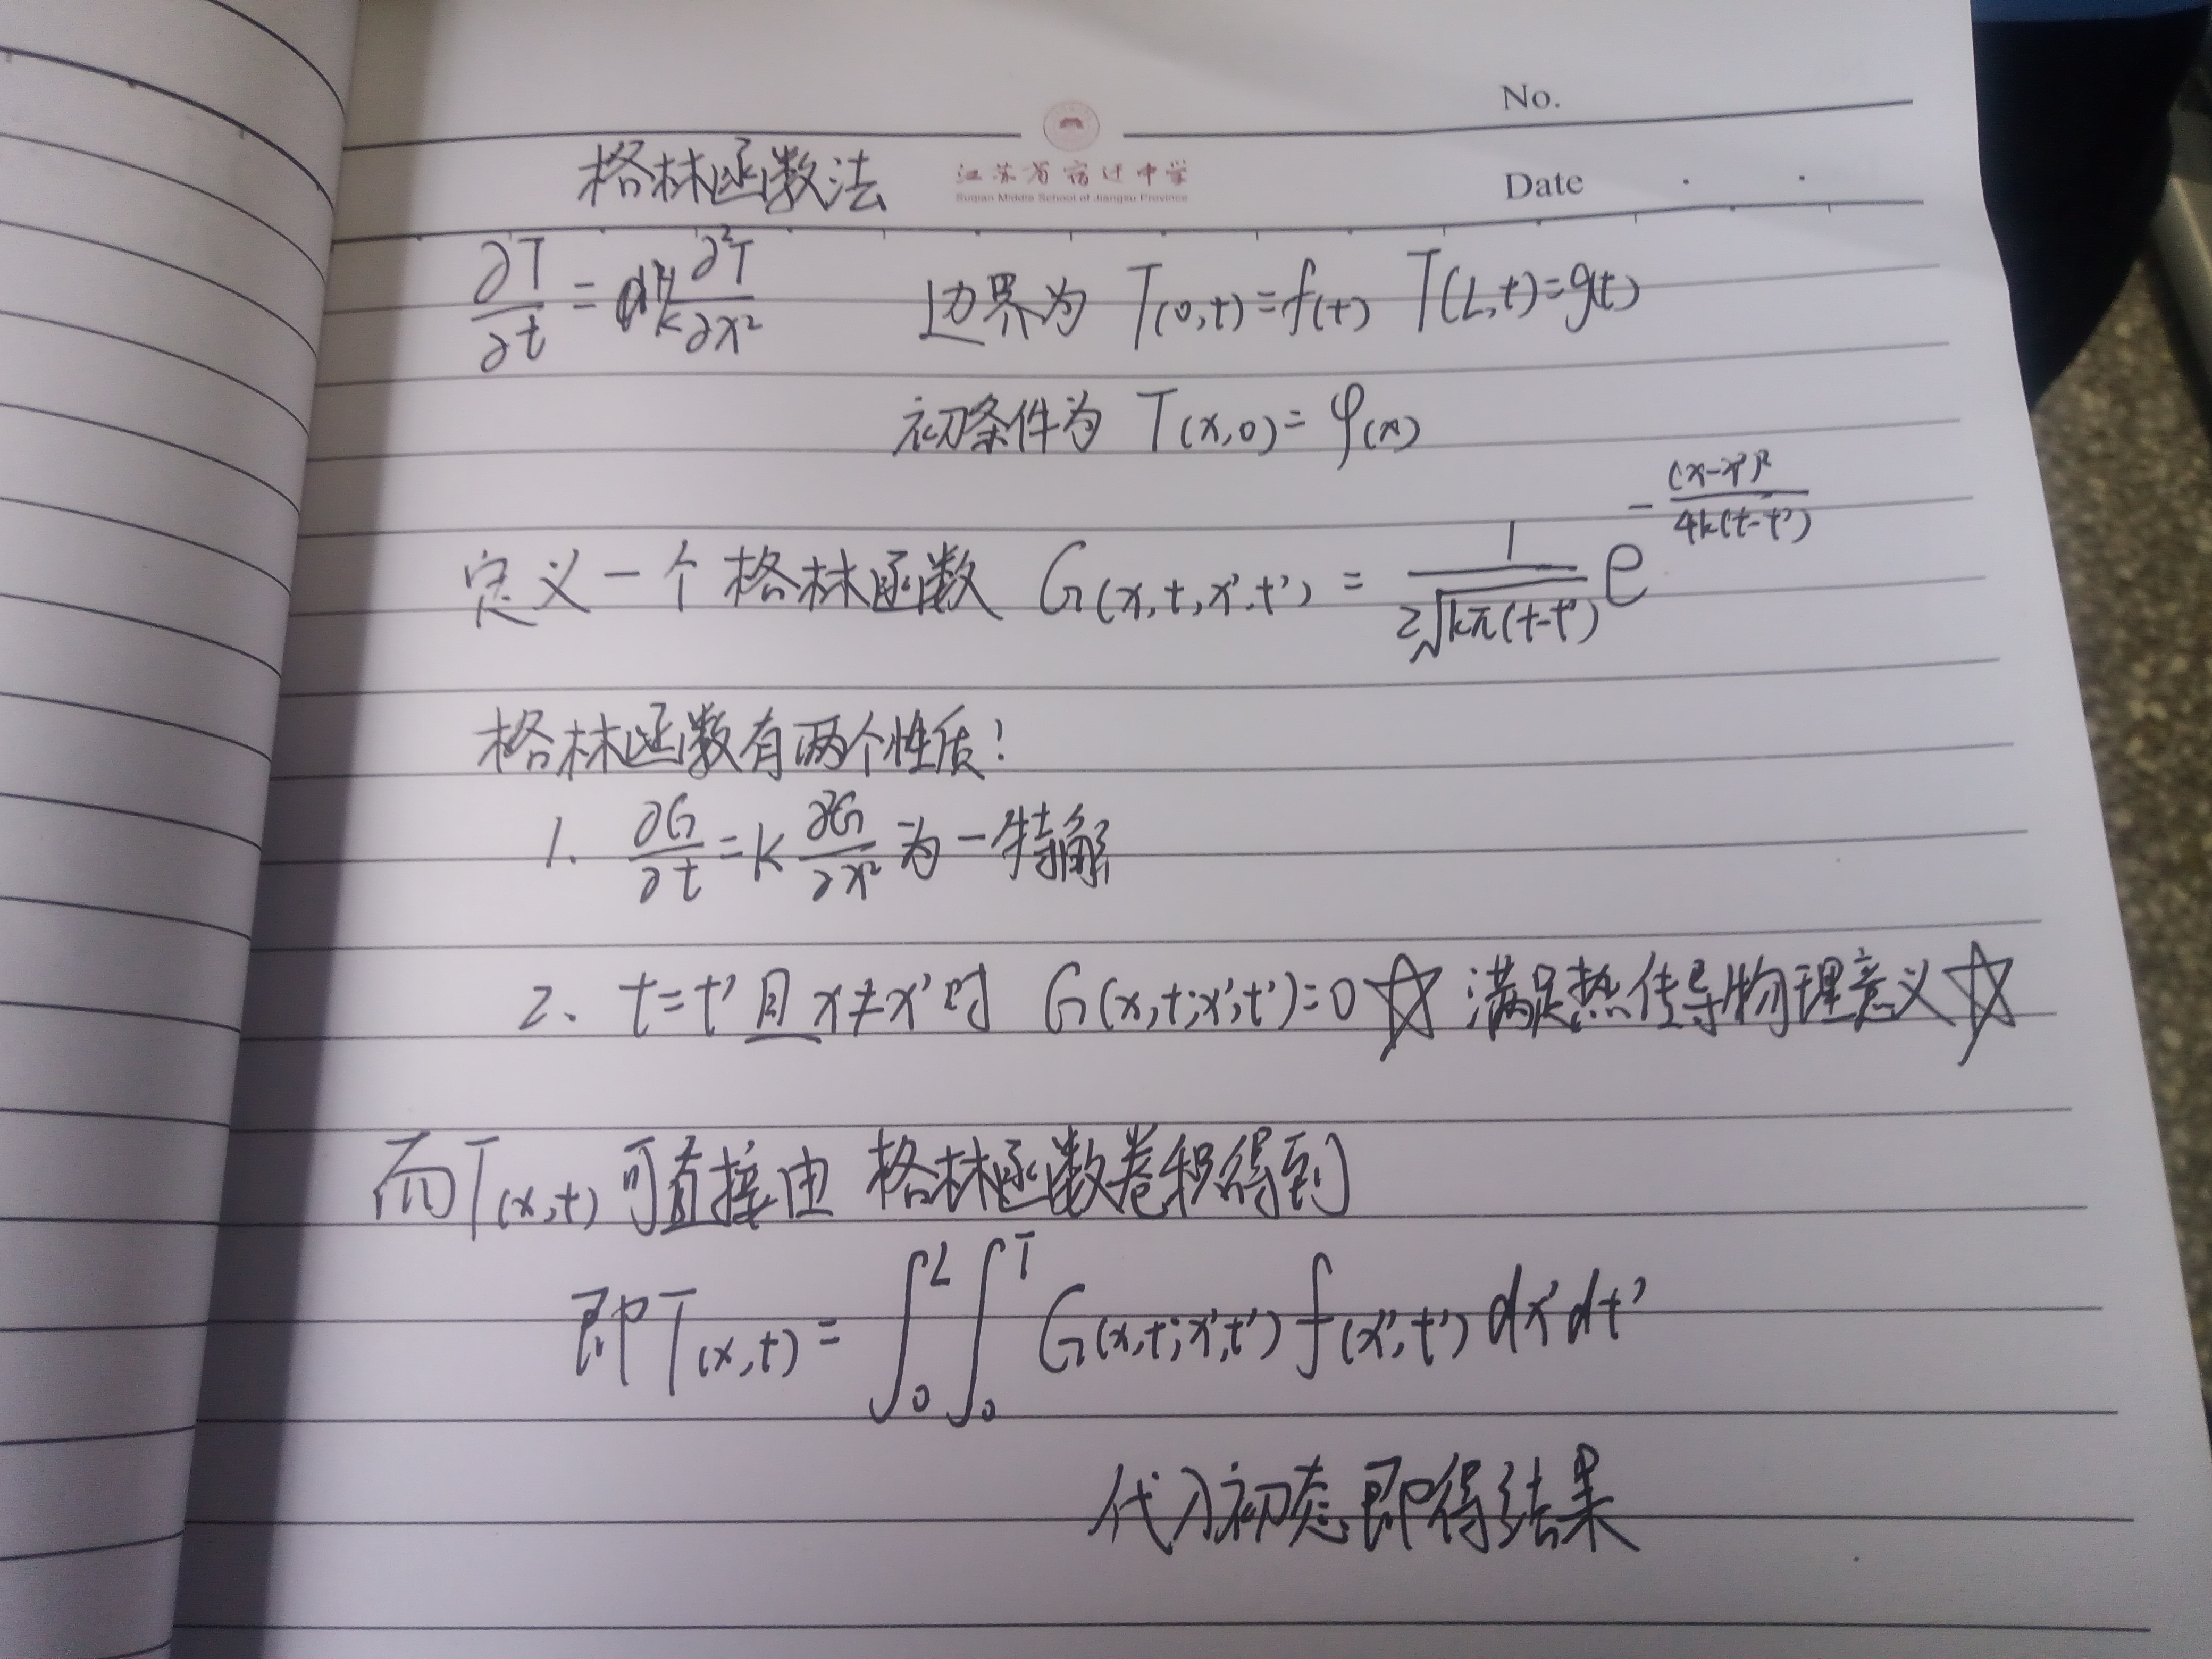 No.
江苏省宿迁中学
Suqian Middle School of Jiangsu Province
Date . .
格林函数法
∂T/∂t = k ∂²T/∂x² 边界为 T(0,t)=f(t) T(L,t)=g(t)
初条件为 T(x,0)=φ(x)
定义一个格林函数 G(x,t,x',t') = 1/(2√(kπ(t-t'))) e^(-(x-x')²/(4k(t-t')))
格林函数有两个性质!
1. ∂G/∂t = k ∂²G/∂x² 为一特解
2、t=t'且x≠x'时 G(x,t;x',t')=0 ☆ 满足热传导物理意义 ☆
而T(x,t)可直接由 格林函数卷积得到
即T(x,t) = ∫₀ᴸ∫₀ᵀ G(x,t;x',t') f(x',t') dx'dt'
代入初态即得结果